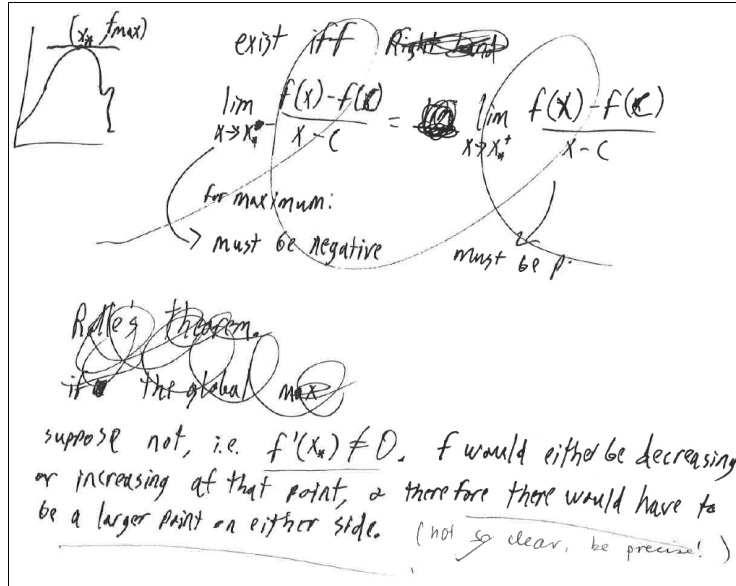 (x*, fmax)
exist iff Right hand
lim x→x*- f(x)-f(c) / x-c = lim x→x*+ f(x)-f(c) / x-c
for maximum:
must be negative
must be p.
Rolle's theorem.
if the global max
suppose not, i.e. f'(x*) ≠ 0. f would either be decreasing
or increasing at that point, & therefore there would have to
be a larger point on either side. (not so clear, be precise!)